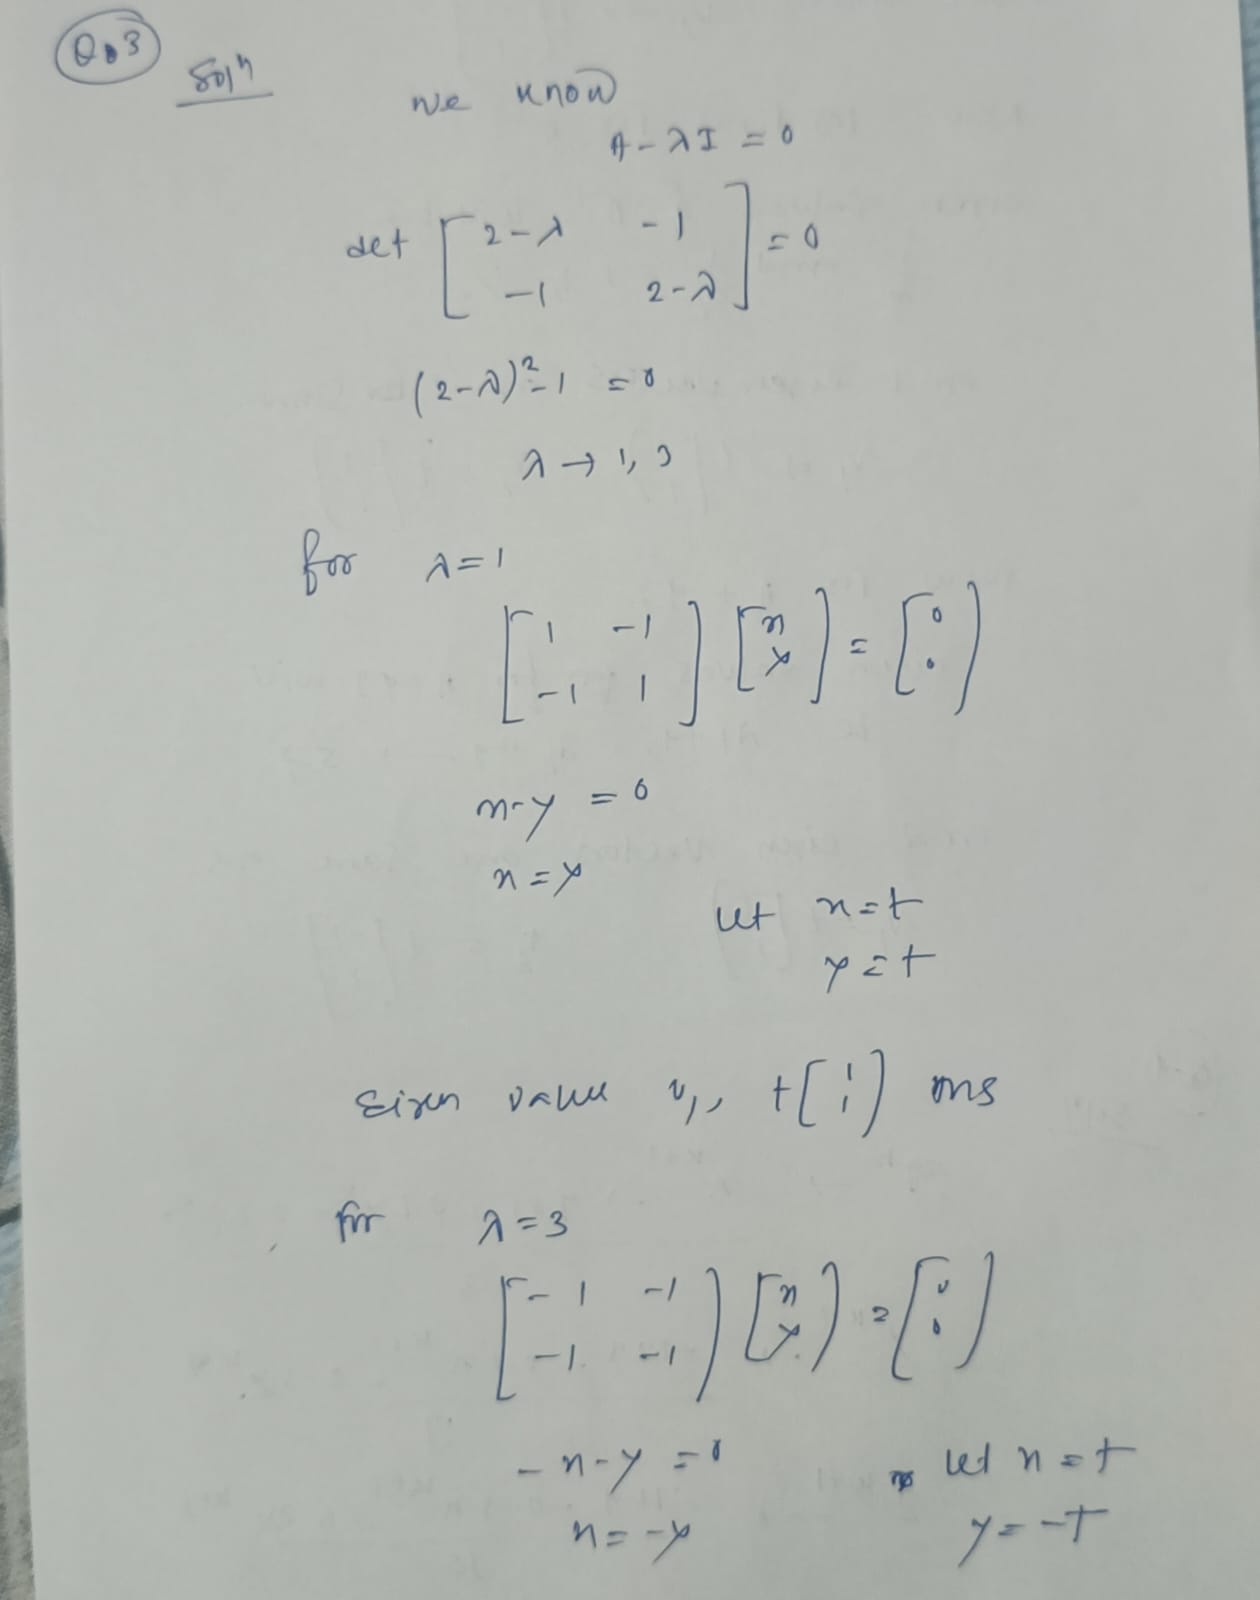 Q.3
Soln
we know
A - λI = 0
det [ 2-λ -1
-1 2-λ ] = 0
(2-λ)² - 1 = 0
λ → 1, 3
for λ = 1
[ 1 -1
-1 1 ] [ x
y ] = [ 0
0 ]
x - y = 0
x = y
let x = t
y = t
Eigen value v₁, t [ 1
1 ] ans
for λ = 3
[ -1 -1
-1 -1 ] [ x
y ] = [ 0
0 ]
-x - y = 0
x = -y
let x = t
y = -t